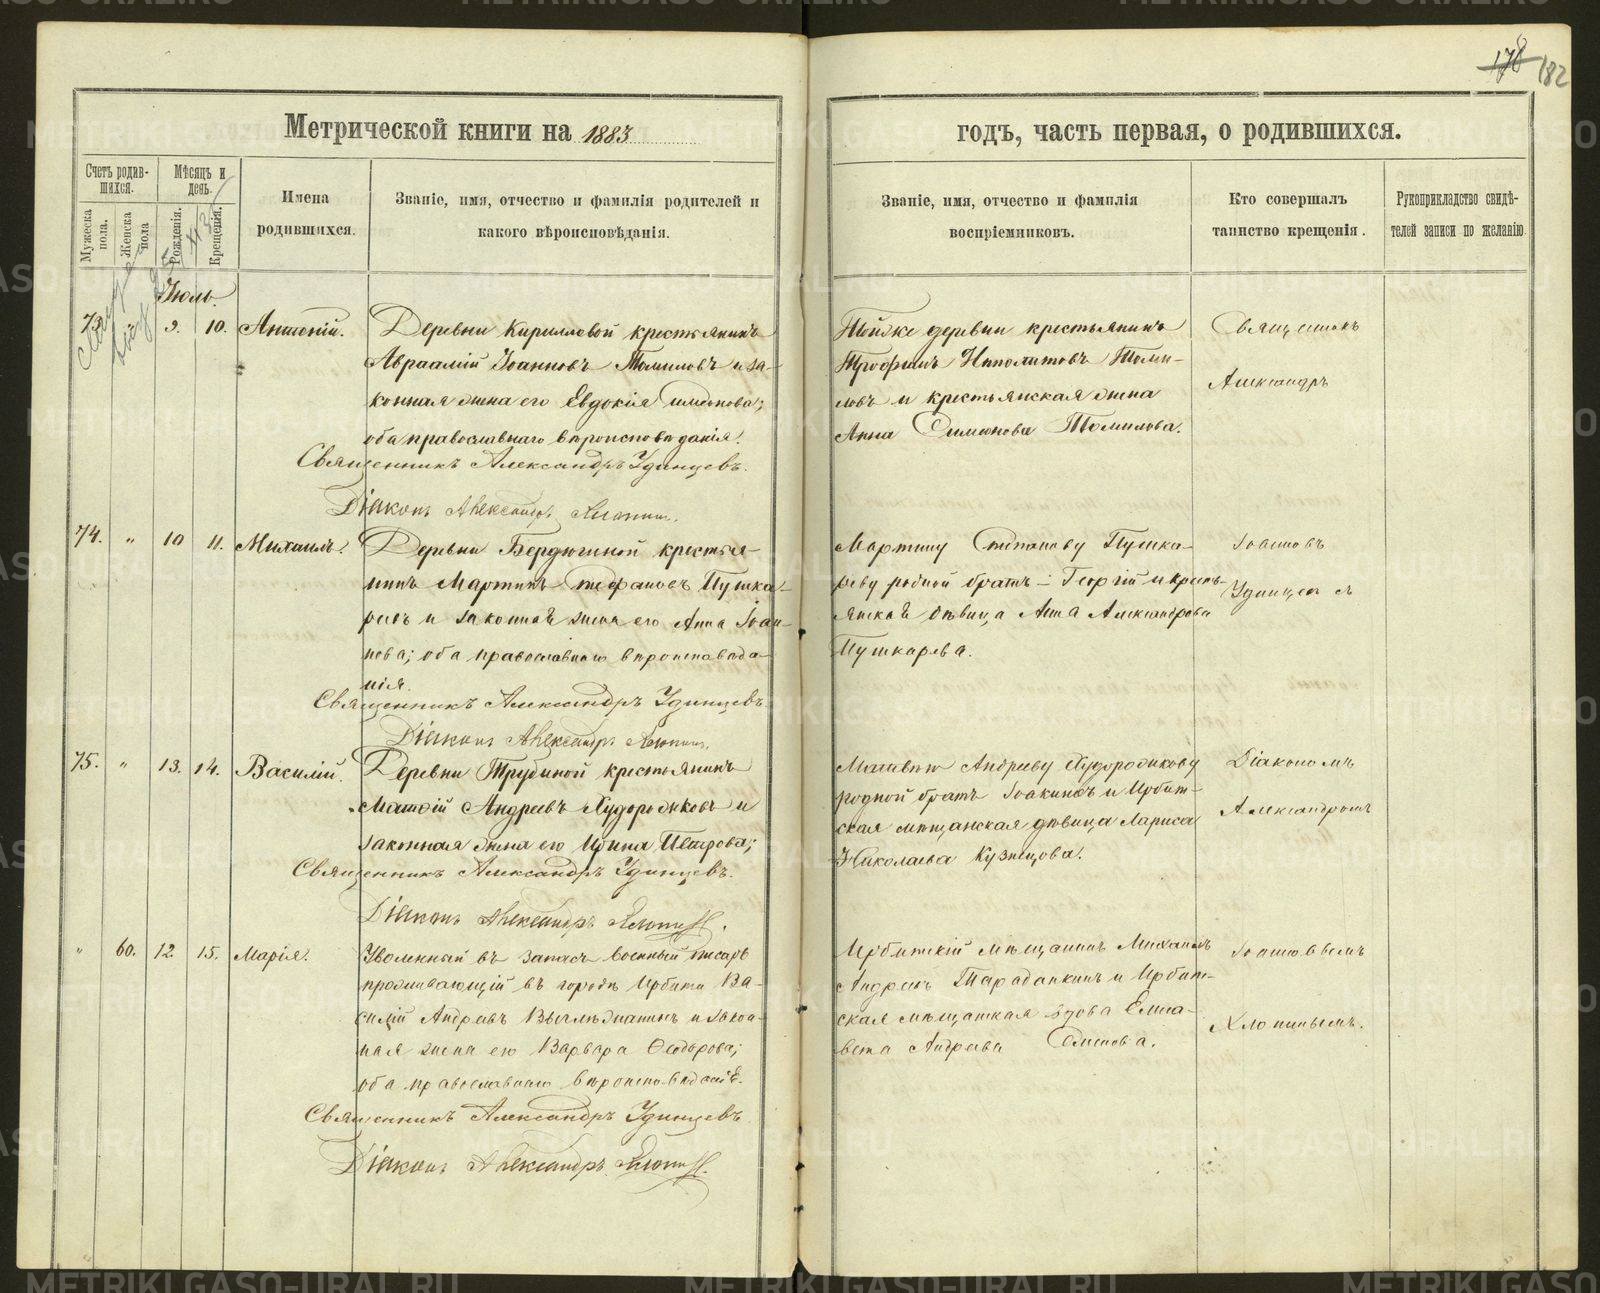 178 182
Метрической книги на 1883
годъ, часть первая, о родившихся.
Счетъ родив-
шихся.
Мѣсяцъ и
день.
Мужеска
пола.
Женска
пола
Рожденія.
Крещенія.
Имена
родившихся.
Званіе, имя, отчество и фамилія родителей и
какого вѣроисповѣданія.
Званіе, имя, отчество и фамилія
воспріемниковъ.
Кто совершалъ
таинство крещенія.
Рукоприкладство свидѣ-
телей записи по желанію.
Іюль.
73. " 9. 10. Антоній.
Деревни Кирилловой крестьянинъ
Авраамій Іоанновъ Томиловъ и за-
конная жена его Евдокія Симеонова;
оба православнаго вѣроисповѣданія.
Священникъ Александръ Удинцевъ.
Діаконъ Александръ Хлопинъ.
Тойже деревни крестьянинъ
Трофимъ Ипполитовъ Томи-
ловъ и крестьянская жена
Анна Симеонова Томилова.
Священникъ
Александръ
74. " 10 11. Михаилъ.
Деревни Бердюгиной крестья-
нинъ Мартинъ Стефановъ Пушка-
ревъ и законная жена его Анна Іоан-
нова; оба православнаго вѣроисповѣда-
нія.
Священникъ Александръ Удинцевъ
Діаконъ Александръ Хлопинъ.
Мартину Стефанову Пушка-
реву родной братъ - Георгій и кресть-
янская дѣвица Анна Александрова
Пушкарева.
Іоанновъ
Удинцевъ съ
75. " 13. 14. Василій.
Деревни Трубиной крестьянинъ
Матѳій Андреевъ Худорожковъ и
законная жена его Ирина Петрова;
Священникъ Александръ Удинцевъ.
Діаконъ Александръ Хлопинъ.
Матвѣю Андрееву Худорожкову
родной братъ Іоакимъ и Ирбит-
ская мѣщанская дѣвица Лариса
Николаева Кузнецова.
Діакономъ
Александромъ
" 60. 12. 15. Марія.
Уволенный въ запасъ военный писарь
проживающій въ городѣ Ирбити Ва-
силій Андреевъ Вычегжанинъ и закон-
ная жена его Варвара Ѳеодорова;
оба православнаго вѣроисповѣданія.
Священникъ Александръ Удинцевъ
Діаконъ Александръ Хлопинъ.
Ирбитскій мѣщанинъ Михаилъ
Андреевъ Тараданкинъ и Ирбит-
ская мѣщанская вдова Елиса-
вета Андреева
Іоанновымъ
Хлопинымъ.
METRIKI.GASO-URAL.RU